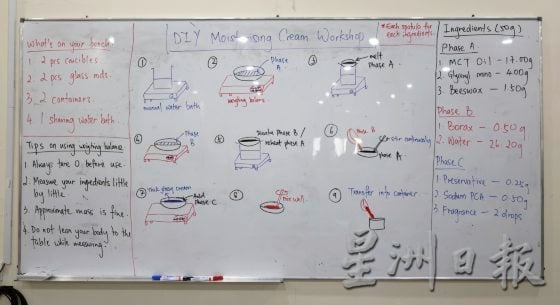 DIY Moisturising Cream Workshop
*Each spatula for
each ingredients.
What's on your bench
1. 2 pcs crucibles
2. 2 pcs glass rods
3. 2 containers
4. 1 sharing water bath
Tips on using weighing balance
1. Always tare 0 before use.
2. Measure your ingredients little
by little.
3. Approximate mass is fine.
4. Do not lean your body to the
table while measuring.
①
manual water bath
②
Phase
A
weighing balance
③
melt
phase A
④
Phase
B
⑤
Dissolve Phase B /
reheat phase A
⑥
Phase B
stir continuously
phase A
⑦
Thick glossy cream
Add
phase C
⑧
mix well
⑨
Transfer into container
Ingredients (50g)
Phase A
1. MCT Oil - 17.50g
2. Glyceryl mono - 4.00g
3. Beeswax - 1.50g
Phase B
1. Borax - 0.50g
2. Water - 26.20g
Phase C
1. Preservative - 0.25g
2. Sodium PCA - 0.50g
3. Fragrance - 2 drops
星洲日報